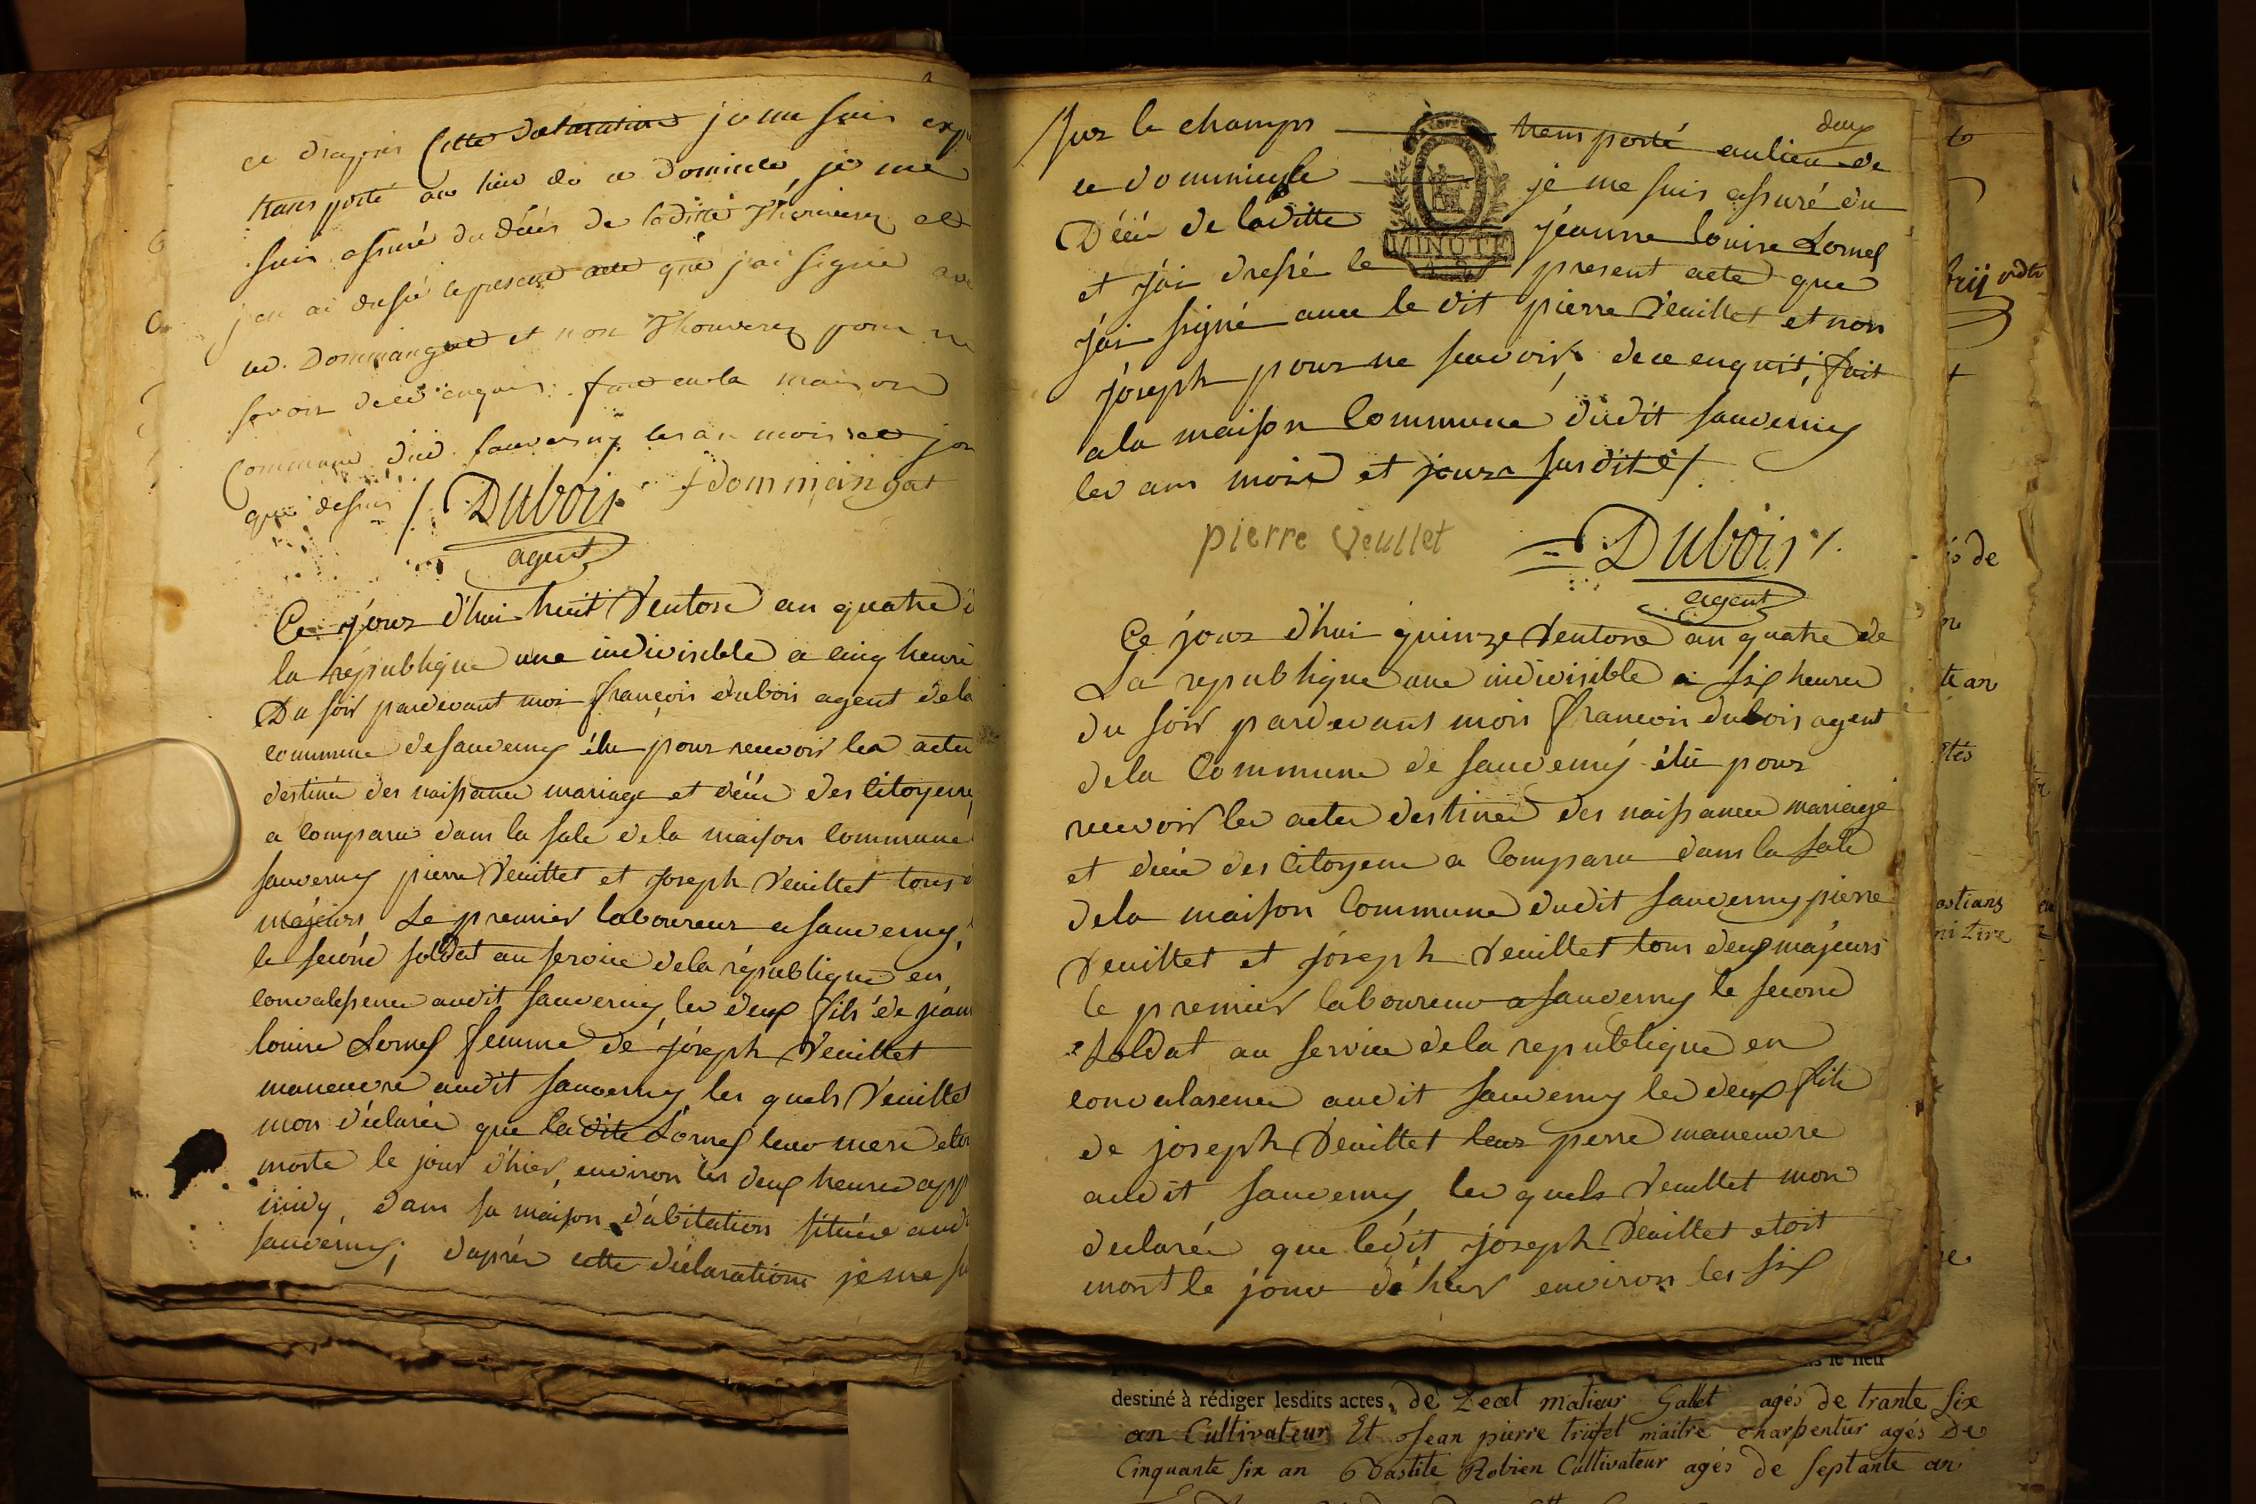 ce d'apres Cette declaration je me suis
transporté au lieu de ce domicile, je me
suis assuré du décès de laditte Thouverez et
j'en ai dressé le present acte que j'ai signé
Dommanget et non Thouverez pour ne
savoir de ce enquis: fait en la maison
Commune dud. Sauverny les an mois et jour
que dessus / Dubois fdommangat
agent
Ce jour d'hui huit Ventose an quatre
la république une indivisible a cinq heure
Du soir pardevant moi françois dubois agent dela
commune de sauverny élu pour recevoir les actes
destinée des naissance mariage et décée des Citoyens
a Comparu dans la sale dela maison Commune
sauverny pierre Veuillet et Joseph Veuillet tous
majeurs, Le premier laboureur a sauverny,
le second soldat au service dela république en
convalessence audit sauverny les deux fils de jean
louise Lornes femme de joseph Veuillet
maneuvre audit sauverny les quels Veuillet
mon déclarée que ladite Lornes leur mere
morte le jour d'hier, environ les deux heures
midy, dans sa maison d'abitation située
sauverny; d'après cette déclaration je me
Sur le champs transporté au lieu de
deux
ce dommicile je me suis assuré du
Décée de laditte jeanne louise Lornes
MINUTE
et j'ai dressé le present acte que
j'ai signé avec le dit pierre Veuillet et non
joseph pour ne scavoir, de ce enquit, fait
a la maison Commune dudit sauverny
les ans mois et jours susdite /.
pierre Veullet Dubois
agent
Ce jour d'hui quinze Ventose an quatre de
La republique une indivisible a six heures
du soir pardevant mois francois dubois agent
dela Commune de sauverny élü pour
recevoir les actes destinée des naissance mariage
et décée des Citoyens a Comparu dans la sale
dela maison Commune dudit sauverny pierre
Veuillet et joseph Veuillet tous deux majeurs
le premier laboureur a sauverny le second
soldat au service dela republique en
convalasence audit sauverny les deux fils
de joseph Veuillet leur perre maneuvre
audit sauverny les quels Veuillet mon
declarée que ledit joseph Veuillet etoit
mort le jour d'hier environ les six
destiné à rédiger lesdits actes, de Matieur Gallet agés de trante six
an Cultivateur Et Jean pierre maitre charpentur agés De
Cinquante six an Robien Cultivateur agés de septante an